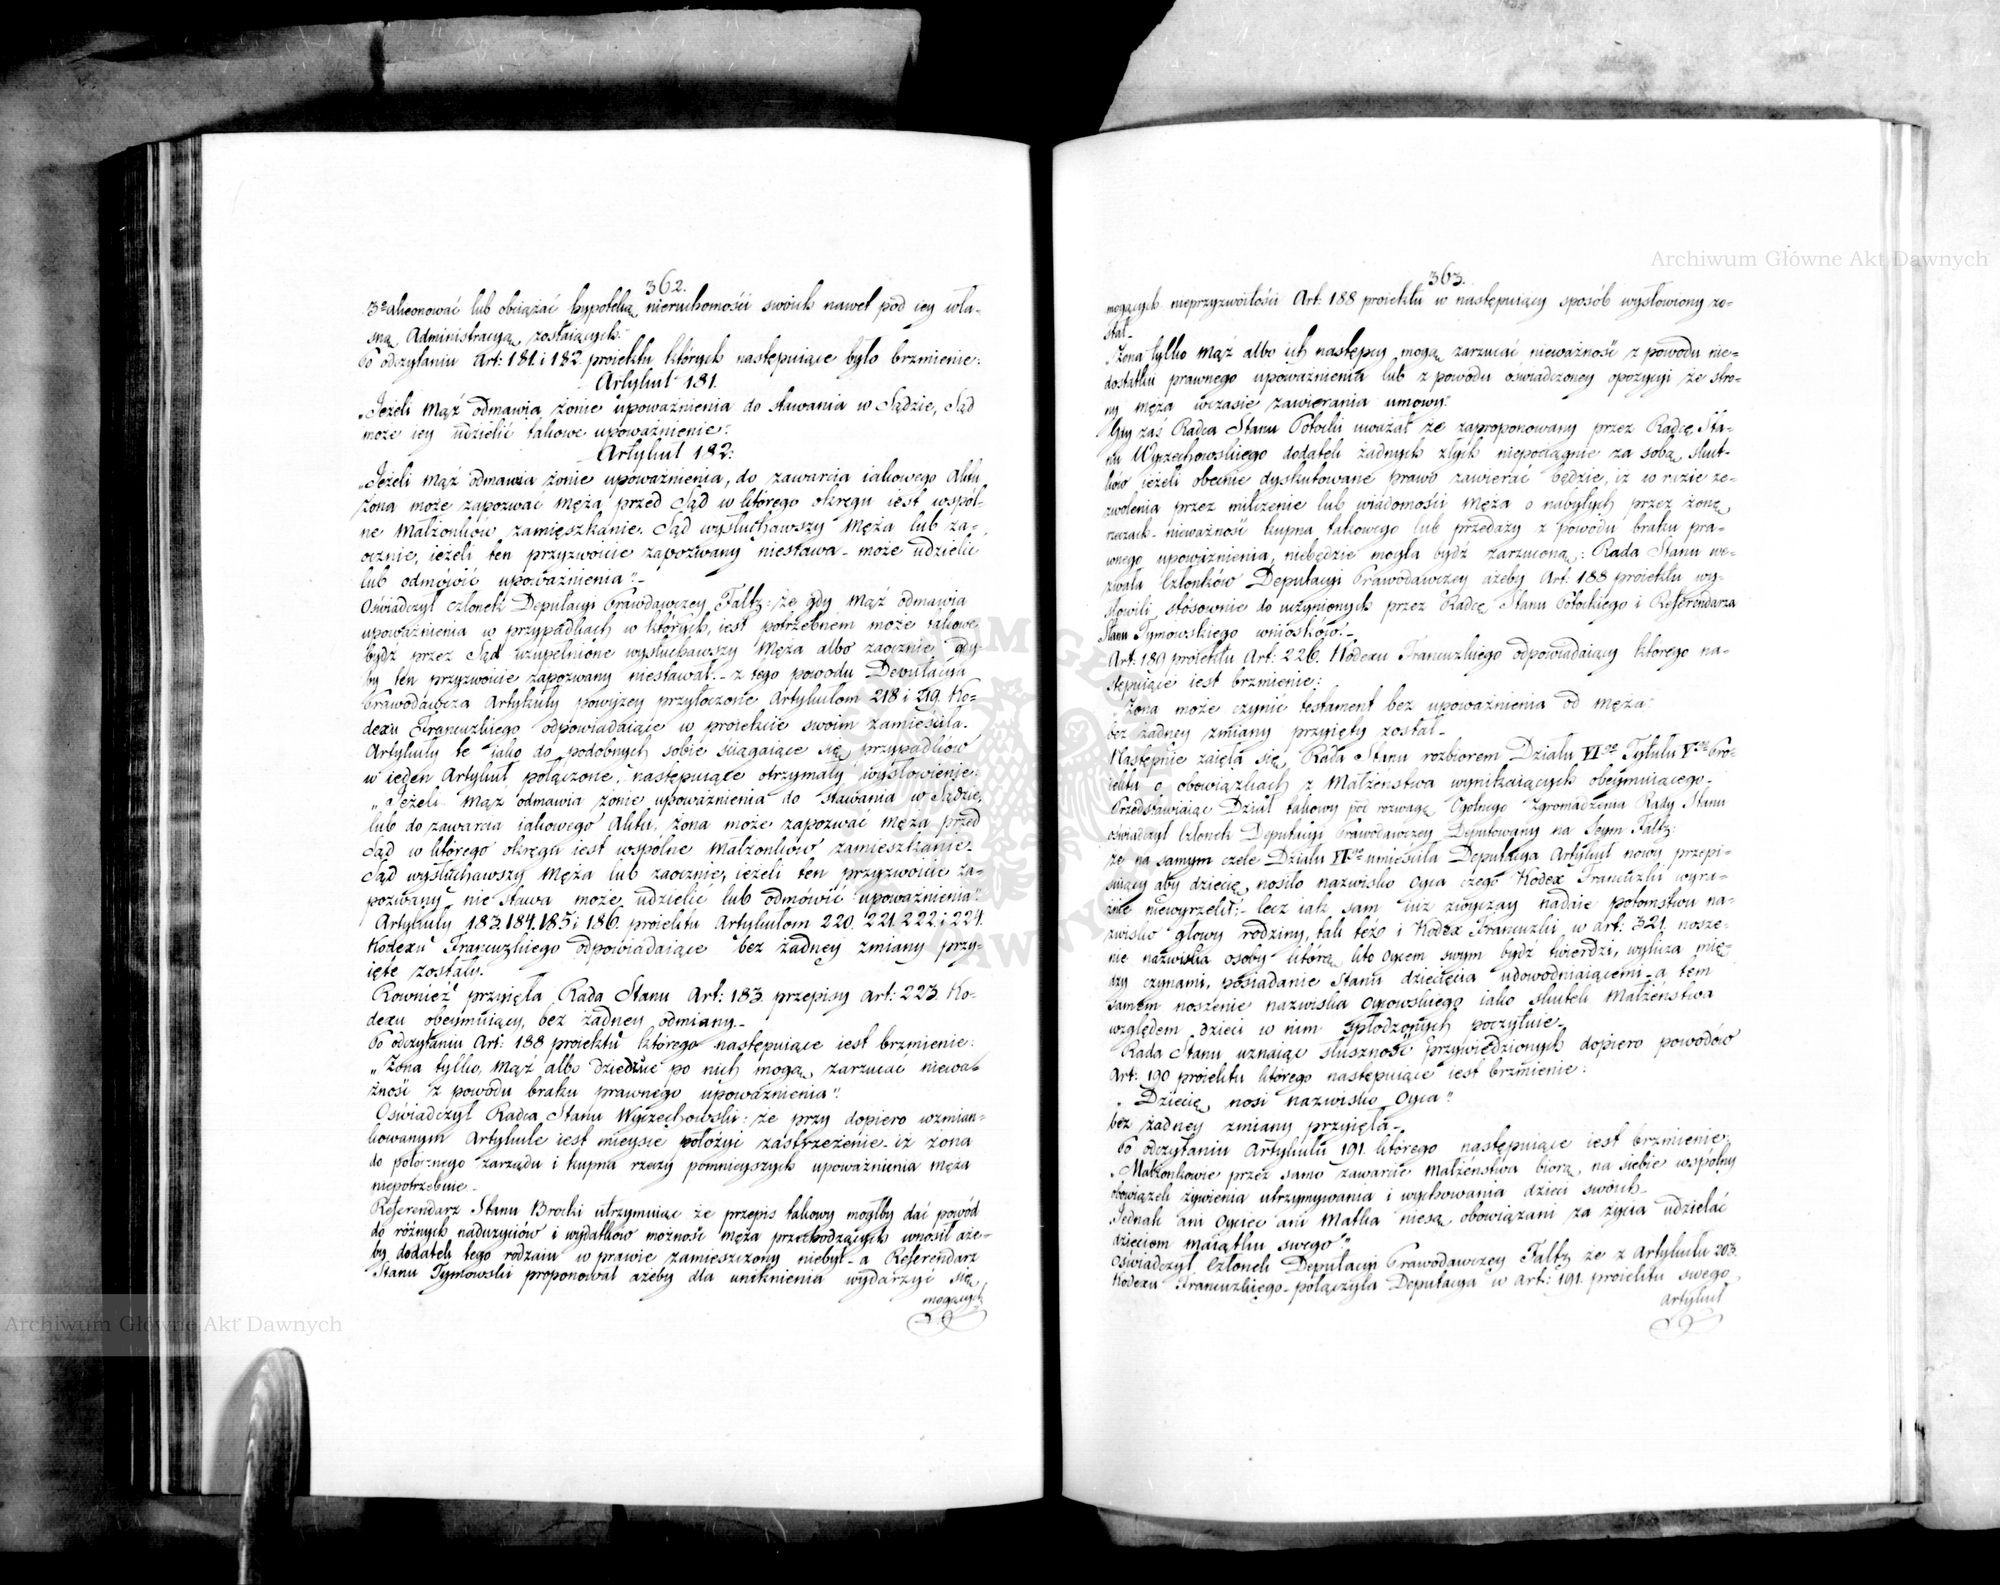 362.
3º alienować lub obciążać hypoteką nieruchomości swoich nawet pod iey wła-
sną Administracyą zostaiących."
Po odczytaniu Art: 181. i 182. proiektu których następuiące było brzmienie:
Artykuł 181.
„Jeżeli Mąż odmawia żonie upoważnienia do stawania w Sądzie, Sąd
może iey udzielić takowe upoważnienie".
Artykuł 182:
„Jeżeli Mąż odmawia żonie upoważnienia, do zawarcia iakowego Aktu
Żona może zapozwać Męża przed Sąd w którego okręgu iest wspól-
ne Małżonków zamięszkanie. Sąd wysłuchawszy Męża lub za-
ocznie, ieżeli ten przyzwoicie zapozwany niestawa - może udzielić
lub odmówić upoważnienia".-
Oświadczył Członek Deputacyi Prawodawczey Faltz: że gdy Mąż odmawia
upoważnienia w przypadkach w których iest potrzebnem może takowe
bydź przez Sąd uzupełnione wysłuchawszy Męża albo zaocznie gdy-
by ten przyzwoicie zapozwany niestawał. - z tego powodu Deputacya
Prawodawcza Artykuły powyżey przytoczone Artykułom 218 i 219. Ko-
dexu Francuzkiego odpowiadaiące w proiekcie swoim zamieściła.
Artykuły te iako do podobnych sobie ściągaiące się przypadków
w ieden Artykuł połączone, następuiące otrzymały wysłowienie:
„Jeżeli Mąż odmawia żonie upoważnienia do stawania w Sądzie,
lub do zawarcia iakowego Aktu, żona może zapozwać Męża przed
Sąd w którego okręgu iest wspólne Małżonków zamieszkanie.
Sąd wysłuchawszy Męża lub zaocznie, ieżeli ten przyzwoicie za-
pozwany nie stawa może udzielić lub odmówić upoważnienia".
Artykuły 183. 184. 185 i 186. proiektu Artykułom 220. 221. 222. i 224.
Kodexu Francuzkiego odpowiadaiące bez żadney zmiany przy-
ięte zostały.
Rownież przyięła Rada Stanu Art: 183. przepisy Art: 223. Ko-
dexu obeymuiący, bez żadney odmiany.-
Po odczytaniu Art: 188 proiektu którego następuiące iest brzmienie:
„Żona tylko, Mąż albo dziedzice po nich mogą zarzucać nieważ-
żność z powodu braku prawnego upoważnienia".
Oświadczył Radca Stanu Wyczechowski: że przy dopiero wzmian-
kowanym Artykule iest mieysce położyć zastrzeżenie - iż żona
do potocznego zarządu i kupna rzeczy pomnieyszych upoważnienia męża
niepotrzebuie.-
Referendarz Stanu Brocki utrzymuiąc że przepis takowy mogłby dać powód
do różnych nadużyciów i wydatków możność męża przechodzących wnosił aże-
by dodatek tego rodzaiu w prawie zamieszczony niebył - a Referendarz
Stanu Tymowski proponował ażeby dla uniknienia wydarzyć się
mogących
363.
mogących nieprzyzwoitości Art: 188 proiektu w następuiący sposób wysłowiony zo-
stał.
„Żona tylko Mąż albo ich następcy mogą zarzucać nieważność z powodu nie-
dostatku prawnego upoważnienia lub z powodu oświadczoney opozycyi ze stro-
ny męża wczasie zawierania umowy".
Gdy zaś Radca Stanu Potocki uważał że zaproponowany przez Radcę Sta-
nu Wyczechowskiego dodatek żadnych złych niepociągnie za sobą skut-
ków ieżeli obecnie dyskutowane prawo zawierać będzie, iż w razie ze-
zwolenia przez milczenie lub wiadomości Męża o nabytych przez żonę
rzeczach - nieważność kupna takowego lub przedaży z powodu braku pra-
wnego upoważnienia niebędzie mogła bydź zarzuconą: Rada Stanu we-
zwała Członków Deputacyi Prawodawczey ażeby Art: 188 proiektu wy-
słowili stósownie do uczynionych przez Radcę Stanu Potockiego i Referendarza
Stanu Tymowskiego wniosków.-
Art: 189 proiektu Art: 226. Kodexu Francuzkiego odpowiadaiący którego na-
stępuiące iest brzmienie:
„Żona może czynić testament bez upoważnienia od męża"
bez żadney zmiany przyięty został.-
Następnie zaięła się Rada Stanu rozbiorem Działu VIgo Tytułu Vgo Pro-
iektu o obowiązkach z Małżeństwa wynikaiących obeymuiącego.-
Przedstawiaiąc Dział takowy pod rozwagę Ogolnego Zgromadzenia Rady Stanu
oświadczył Członek Deputacyi Prawodawczey Deputowany na Seym Faltz:
że na samym czele Działu VIgo umieściła Deputacya Artykuł nowy przepi-
suiący aby dziecię nosiło nazwisko Oyca czego Kodex Francuzki wyra-
źnie niewyrzekł; - lecz iak sam iuż zwyczay nadaie potomstwu na-
zwisko głowy rodziny, tak też i Kodex Francuzki w Art: 321. nosze-
nie nazwiska osoby którą kto Oycem swym bydź twierdzi, wylicza mię-
dzy czynami, posiadanie Stanu dziecięcia udowodniaiącemi - a tem
samem noszenie nazwiska Oycowskiego iako skutek Małżeństwa
względem dzieci w nim spłodzonych poczytuie.-
Rada Stanu uznaiąc słuszność przywiedzionych dopiero powodów
Art: 190 proiektu którego następuiące iest brzmienie:
„Dziecię nosi nazwisko Oyca"
bez żadney zmiany przyięła.-
Po odczytaniu Artykułu 191. którego następuiące iest brzmienie:
„Małżonkowie przez samo zawarcie Małżeństwa biorą na siebie wspólny
obowiązek żywienia utrzymywania i wychowania dzieci swoich.
Jednak ani Oyciec ani Matka niesą obowiązani za życia udzielać
dzieciom maiątku swego".
Oświadczył Członek Deputacyi Prawodawczey Faltz że z Artykułu 203.
Kodexu Francuzkiego - połączyła Deputacya w Art: 191. proiektu swego
Artykuł
Archiwum Główne Akt Dawnych
Archiwum Główne Akt Dawnych